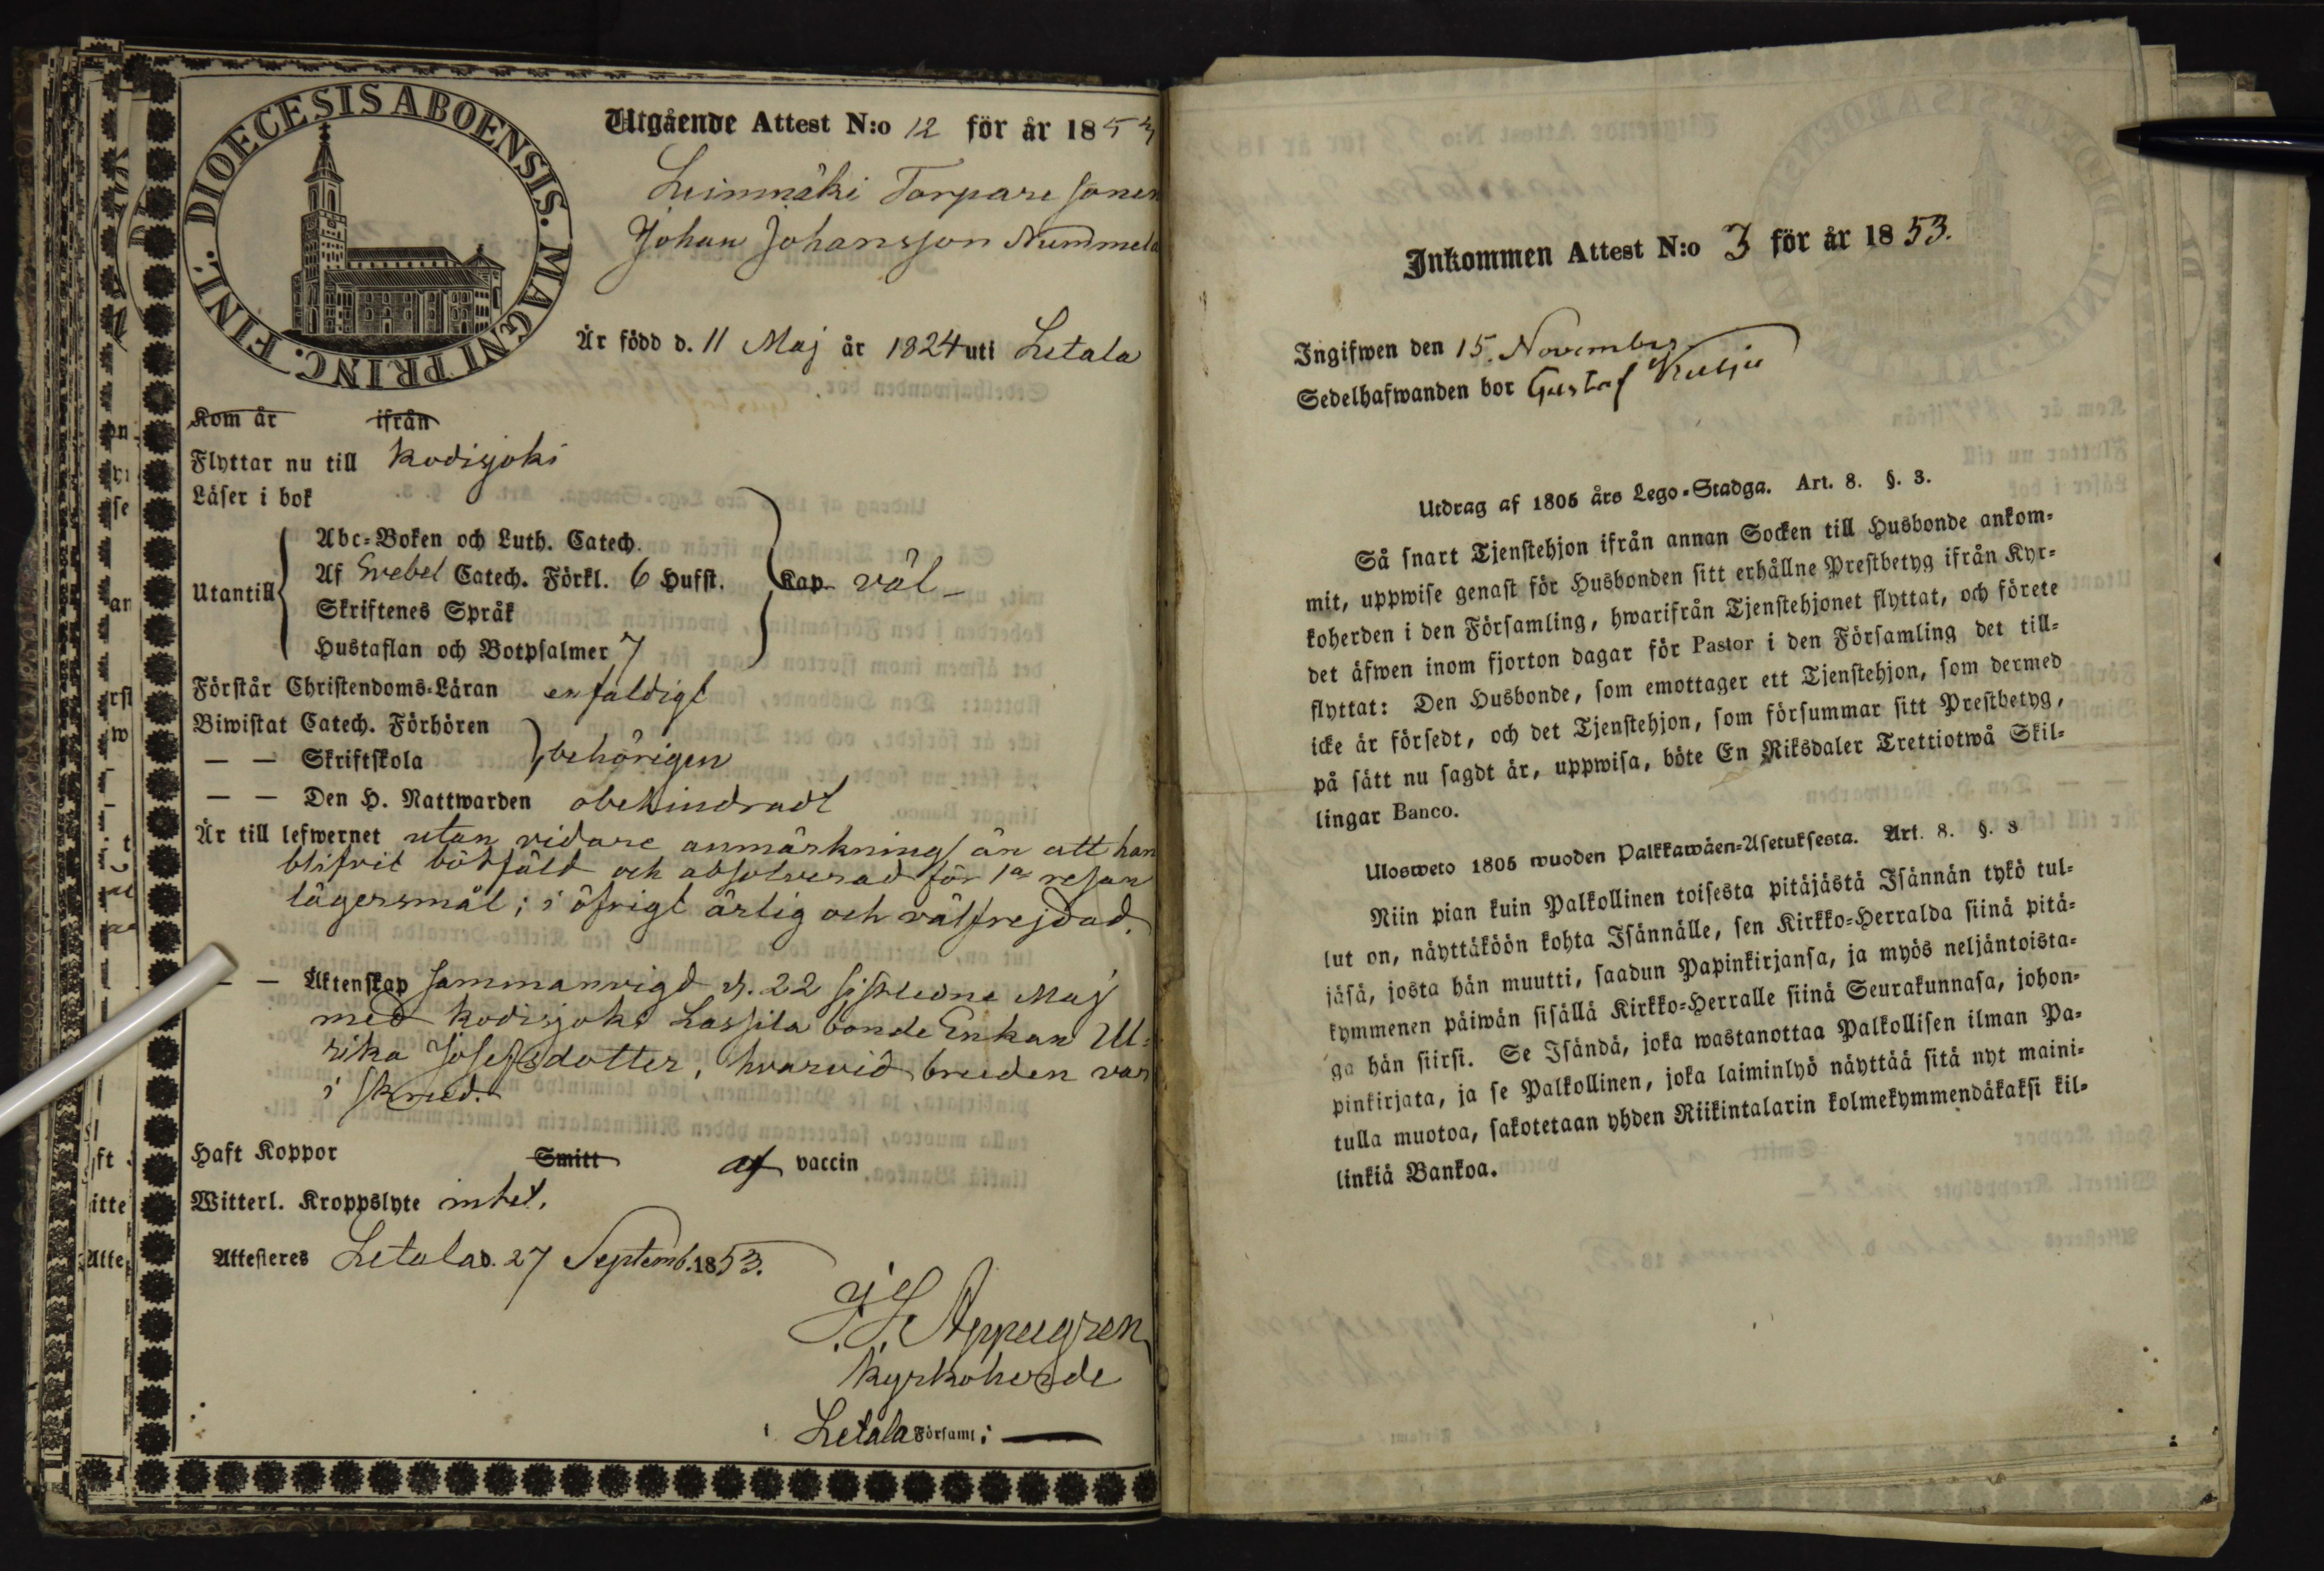 DIOECESIS ABOENSIS. MAGNI PRINC. FINL.
Utgående Attest N:o 12 för år 1853
Leinmäki Torpare sonen
Johan Johansson Nummela
Är född d. 11 Maj år 1824 uti Letala
Kom år ifrån
Flyttar nu till Kodisjoki
Läser i bok
Utantill
Abc-Boken och Luth. Catech.
Af Svebel Catech. Förkl. 6 Hufst. Kap. väl
Skriftenes Språk
Hustaflan och Botpsalmer 7
Förstår Christendoms-Läran enfaldigt
Biwistat Catech. Förhören
— — Skriftskola behörigen
— — Den H. Nattwarden obehindradt
Är till lefwernet utan vidare anmärkning, än att han
blifvit bötfäld och absolverad för 1a resan
lägersmål; i öfrigt ärlig och välfrejdad.
— — Äktenskap sammanvigd d. 22 sistledne Maj
med Kodisjoki Lassila bonde Enkan Ul-
rika Josefsdotter, hvarvid bruden var
i skrud.
Haft Koppor Smitt af vaccin
Witterl. Kroppslyte intet.
Attesteres Letala d. 27 Septemb. 1853.
Appelgren
Kyrkoherde
i Letala Församl:
Inkommen Attest N:o 3 för år 1853.
Ingifwen den 15. November
Sedelhafwanden bor Gustaf
Utdrag af 1805 års Lego-Stadga. Art. 8. §. 3.
Så snart Tjenstehjon ifrån annan Socken till Husbonde ankom-
mit, uppwise genast för Husbonden sitt erhållne Prestbetyg ifrån Kyr-
koherden i den Församling, hwarifrån Tjenstehjonet flyttat, och förete
det äfwen inom fjorton dagar för Pastor i den Församling det till-
flyttat: Den Husbonde, som emottager ett Tjenstehjon, som dermed
icke är försedt, och det Tjenstehjon, som försummar sitt Prestbetyg,
på sätt nu sagdt är, uppwisa, böte En Riksdaler Trettiotwå Skil-
lingar Banco.
Ulosweto 1805 wuoden Palkkawäen-Asetuksesta. Art. 8. §. 3
Niin pian kuin Palkollinen toisesta pitäjästä Isännän tykö tul-
lut on, näyttäköön kohta Isännälle, sen Kirkko-Herralda siinä pitä-
jäsä, josta hän muutti, saadun Papinkirjansa, ja myös neljäntoista-
kymmenen päiwän sisällä Kirkko-Herralle siinä Seurakunnasa, johon-
ga hän siirsi. Se Isändä, joka wastanottaa Palkollisen ilman Pa-
pinkirjata, ja se Palkollinen, joka laiminlyö näyttää sitä nyt maini-
tulla muotoa, sakotetaan yhden Riikintalarin kolmekymmendäkaksi kil-
linkiä Bankoa.